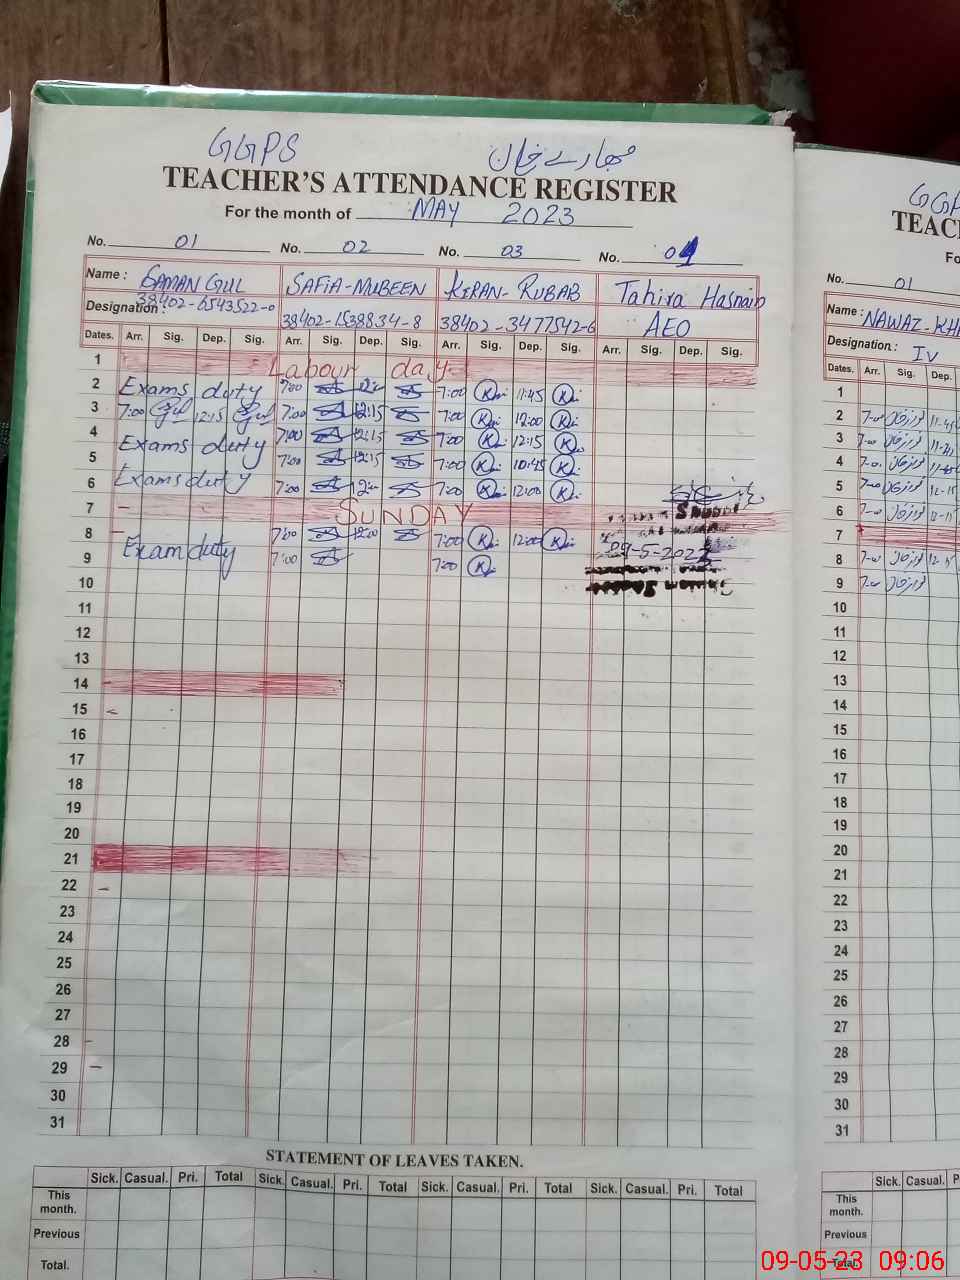 GGPS بھارے خان
TEACHER'S ATTENDANCE REGISTER
For the month of MAY 2023
No. 01 No. 02 No. 03 No. 04
Name : SAMAN GUL SAFIA-MUBEEN KIRAN-RUBAB Tahira Hasnain
Designation: 38402-6543522-0 38402-1538834-8 38402-3477542-6 AEO
Dates. Arr. Sig. Dep. Sig. Arr. Sig. Dep. Sig. Arr. Sig. Dep. Sig. Arr. Sig. Dep. Sig.
1 Labour day
2 Exams duty 7:00 12:00 7:00 11:45
3 7:00 Gul 12:15 Gul 7:00 12:15 7:00 12:00
4 Exams duty 7:00 12:15 7:00 12:15
5 7:00 12:15 7:00 10:45
6 Exams duty 7:00 12:00 7:00 12:00
7 SUNDAY
8 Exam duty 7:00 12:00 7:00 12:00
9 7:00 7:00 09-5-2023
10
11
12
13
14
15
16
17
18
19
20
21
22
23
24
25
26
27
28
29
30
31
STATEMENT OF LEAVES TAKEN.
Sick. Casual. Pri. Total Sick. Casual. Pri. Total Sick. Casual. Pri. Total Sick. Casual. Pri. Total
This month.
Previous
Total.
No. 01
Name : NAWAZ-
Designation.: IV
Dates. Arr. Sig. Dep.
1
2 7-00 نواز خان 11-45
3 7-00 نواز خان
4 7-00 نواز خان
5 7-00 نواز خان 12-15
6 7-00 نواز خان 12-15
7
8 7-00 نواز خان 12-15
9 7-00 نواز خان
10
11
12
13
14
15
16
17
18
19
20
21
22
23
24
25
26
27
28
29
30
31
Sick. Casual.
This month.
Previous
Total.
09-05-23 09:06